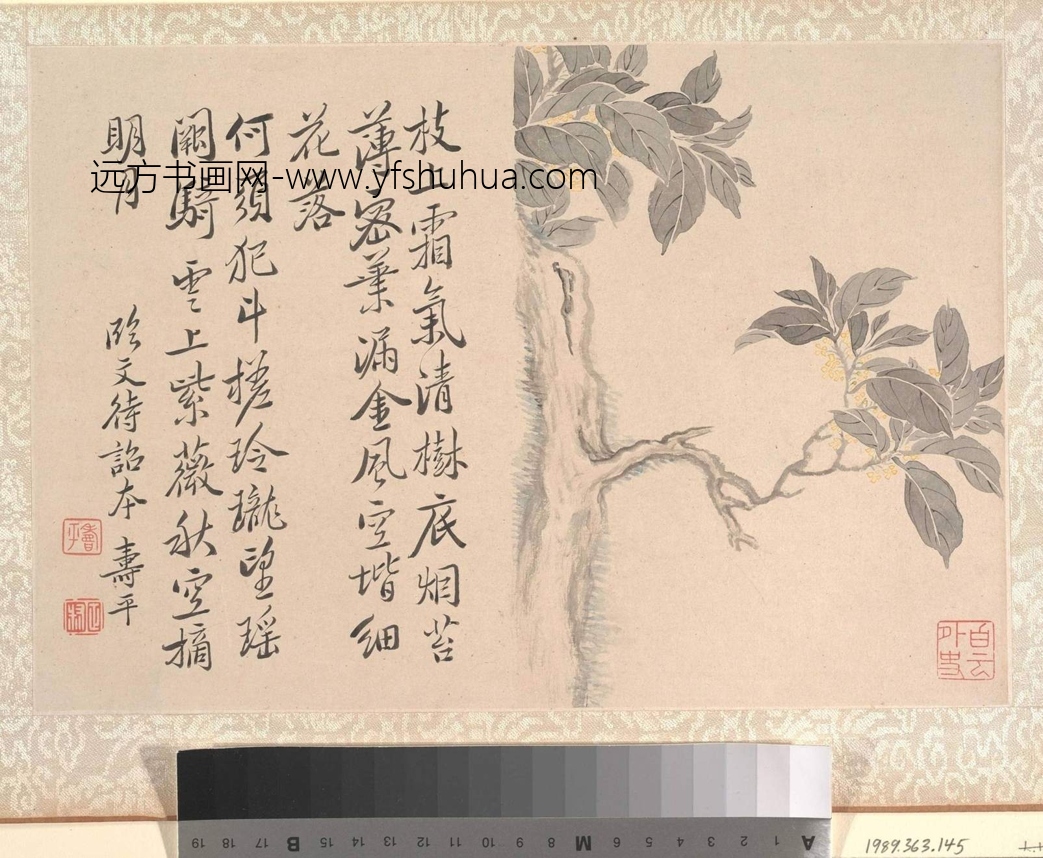 枝上霜氣清樹底烟苔
薄密葉漏金風空堦細
花落
何須犯斗槎玲瓏望瑶
闕騎雲上紫薇秋空摘
明月
臨文待詔本 壽平
白云外史
远方书画网-www.yfshuhua.com
19 18 17 B 15 14 13 12 11 10 9 8 M 6 5 4 3 2 1 A
1989.363.145